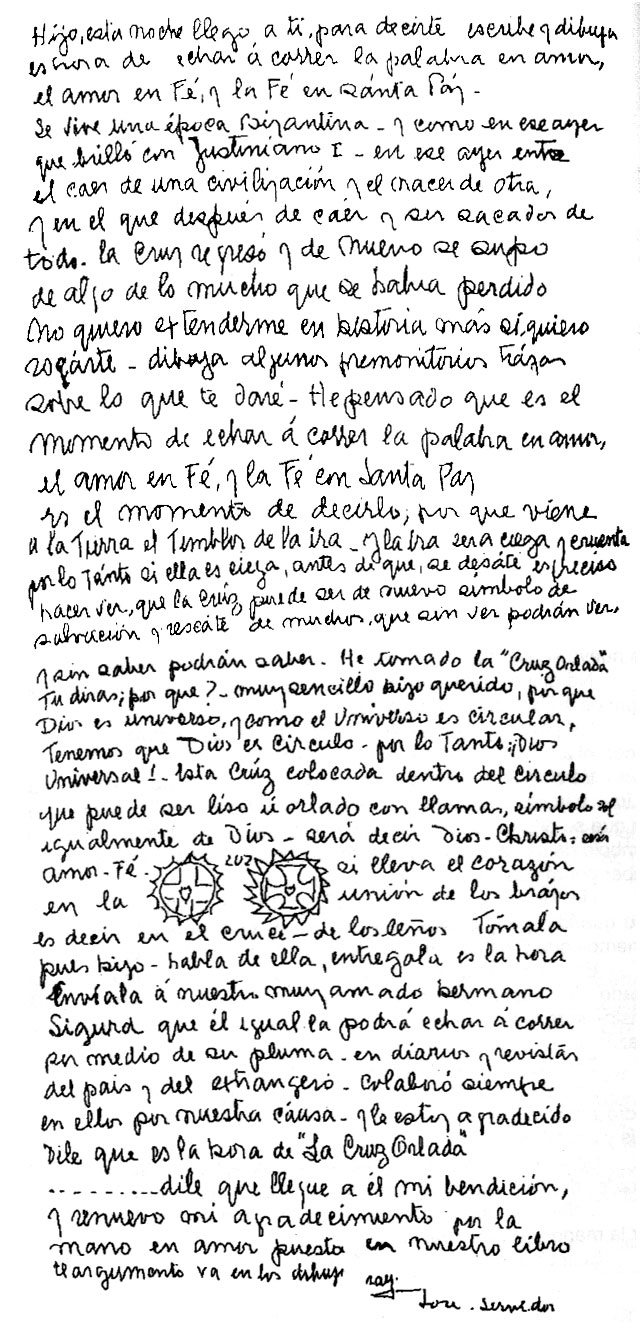 Hijo, esta noche llego a ti, para decirte escribe y dibuja
es hora de echar á correr la palabra en amor,
el amor en Fé, y la Fé en sánta Páz -
Se vive una época Bizantina - y como en ese ayer
que brilló con Justiniano I - en ese ayer entre
el caer de una civilización y el nacer de otra,
y en el que después de caér y ser sacados de
todo. la Cruz regresó y de nuevo se supo
de algo de lo mucho que se había perdido
No quiero extenderme en historia más sí, quiero
rogárte - dibuja algunos premonitorios trázos
sobre lo que te daré - He pensado que es el
momento de echar á correr la palabra en amor,
el amor en Fé, y la Fé en Santa Paz
es el momento de decirlo, por que viene
a la Tierra el Temblor de la ira - y la ira sera ciega y cruenta
por lo Tánto si ella es ciega, antes de que, se desáte es preciso
hacer ver, que la Crúz puede ser de nuevo símbolo de
salvación y rescáte de muchos, que sin ver podrán ver,
y sin saber podrán saber. He tomado la "Cruz Orlada"
Tu diras; por que? - muy sencillo hijo querido, por que
Dios es universo, y como el Universo es circular,
Tenemos que Dios es Circulo - por lo Tanto: ¡Dios
Universal! - Esta Crúz colocada dentro del circulo
que puede ser liso ú orlado con llamas, símbolo
igualmente de Dios - será decir Dios - Christi -
amor - Fé - si lleva el corazón
en la unión de los brázos
es decir en el cruce - de los leños Tómala
pues hijo - habla de ella, entregala es la hora
Envíala á nuestro muy amado hermano
Sigurd que él igual la podrá echar á correr
por medio de su pluma - en diarios y revistás
del pais y del extrangero - Colaboró siempre
en ellos por nuestra cáusa - y le estoy agradecido
Dile que es la hora de "La Cruz Orlada"
.......... dile que llegue a él mi bendición,
y renuevo mi agradecimiento por la
mano en amor puesta en nuestro libro
te argumento va en los dibuj